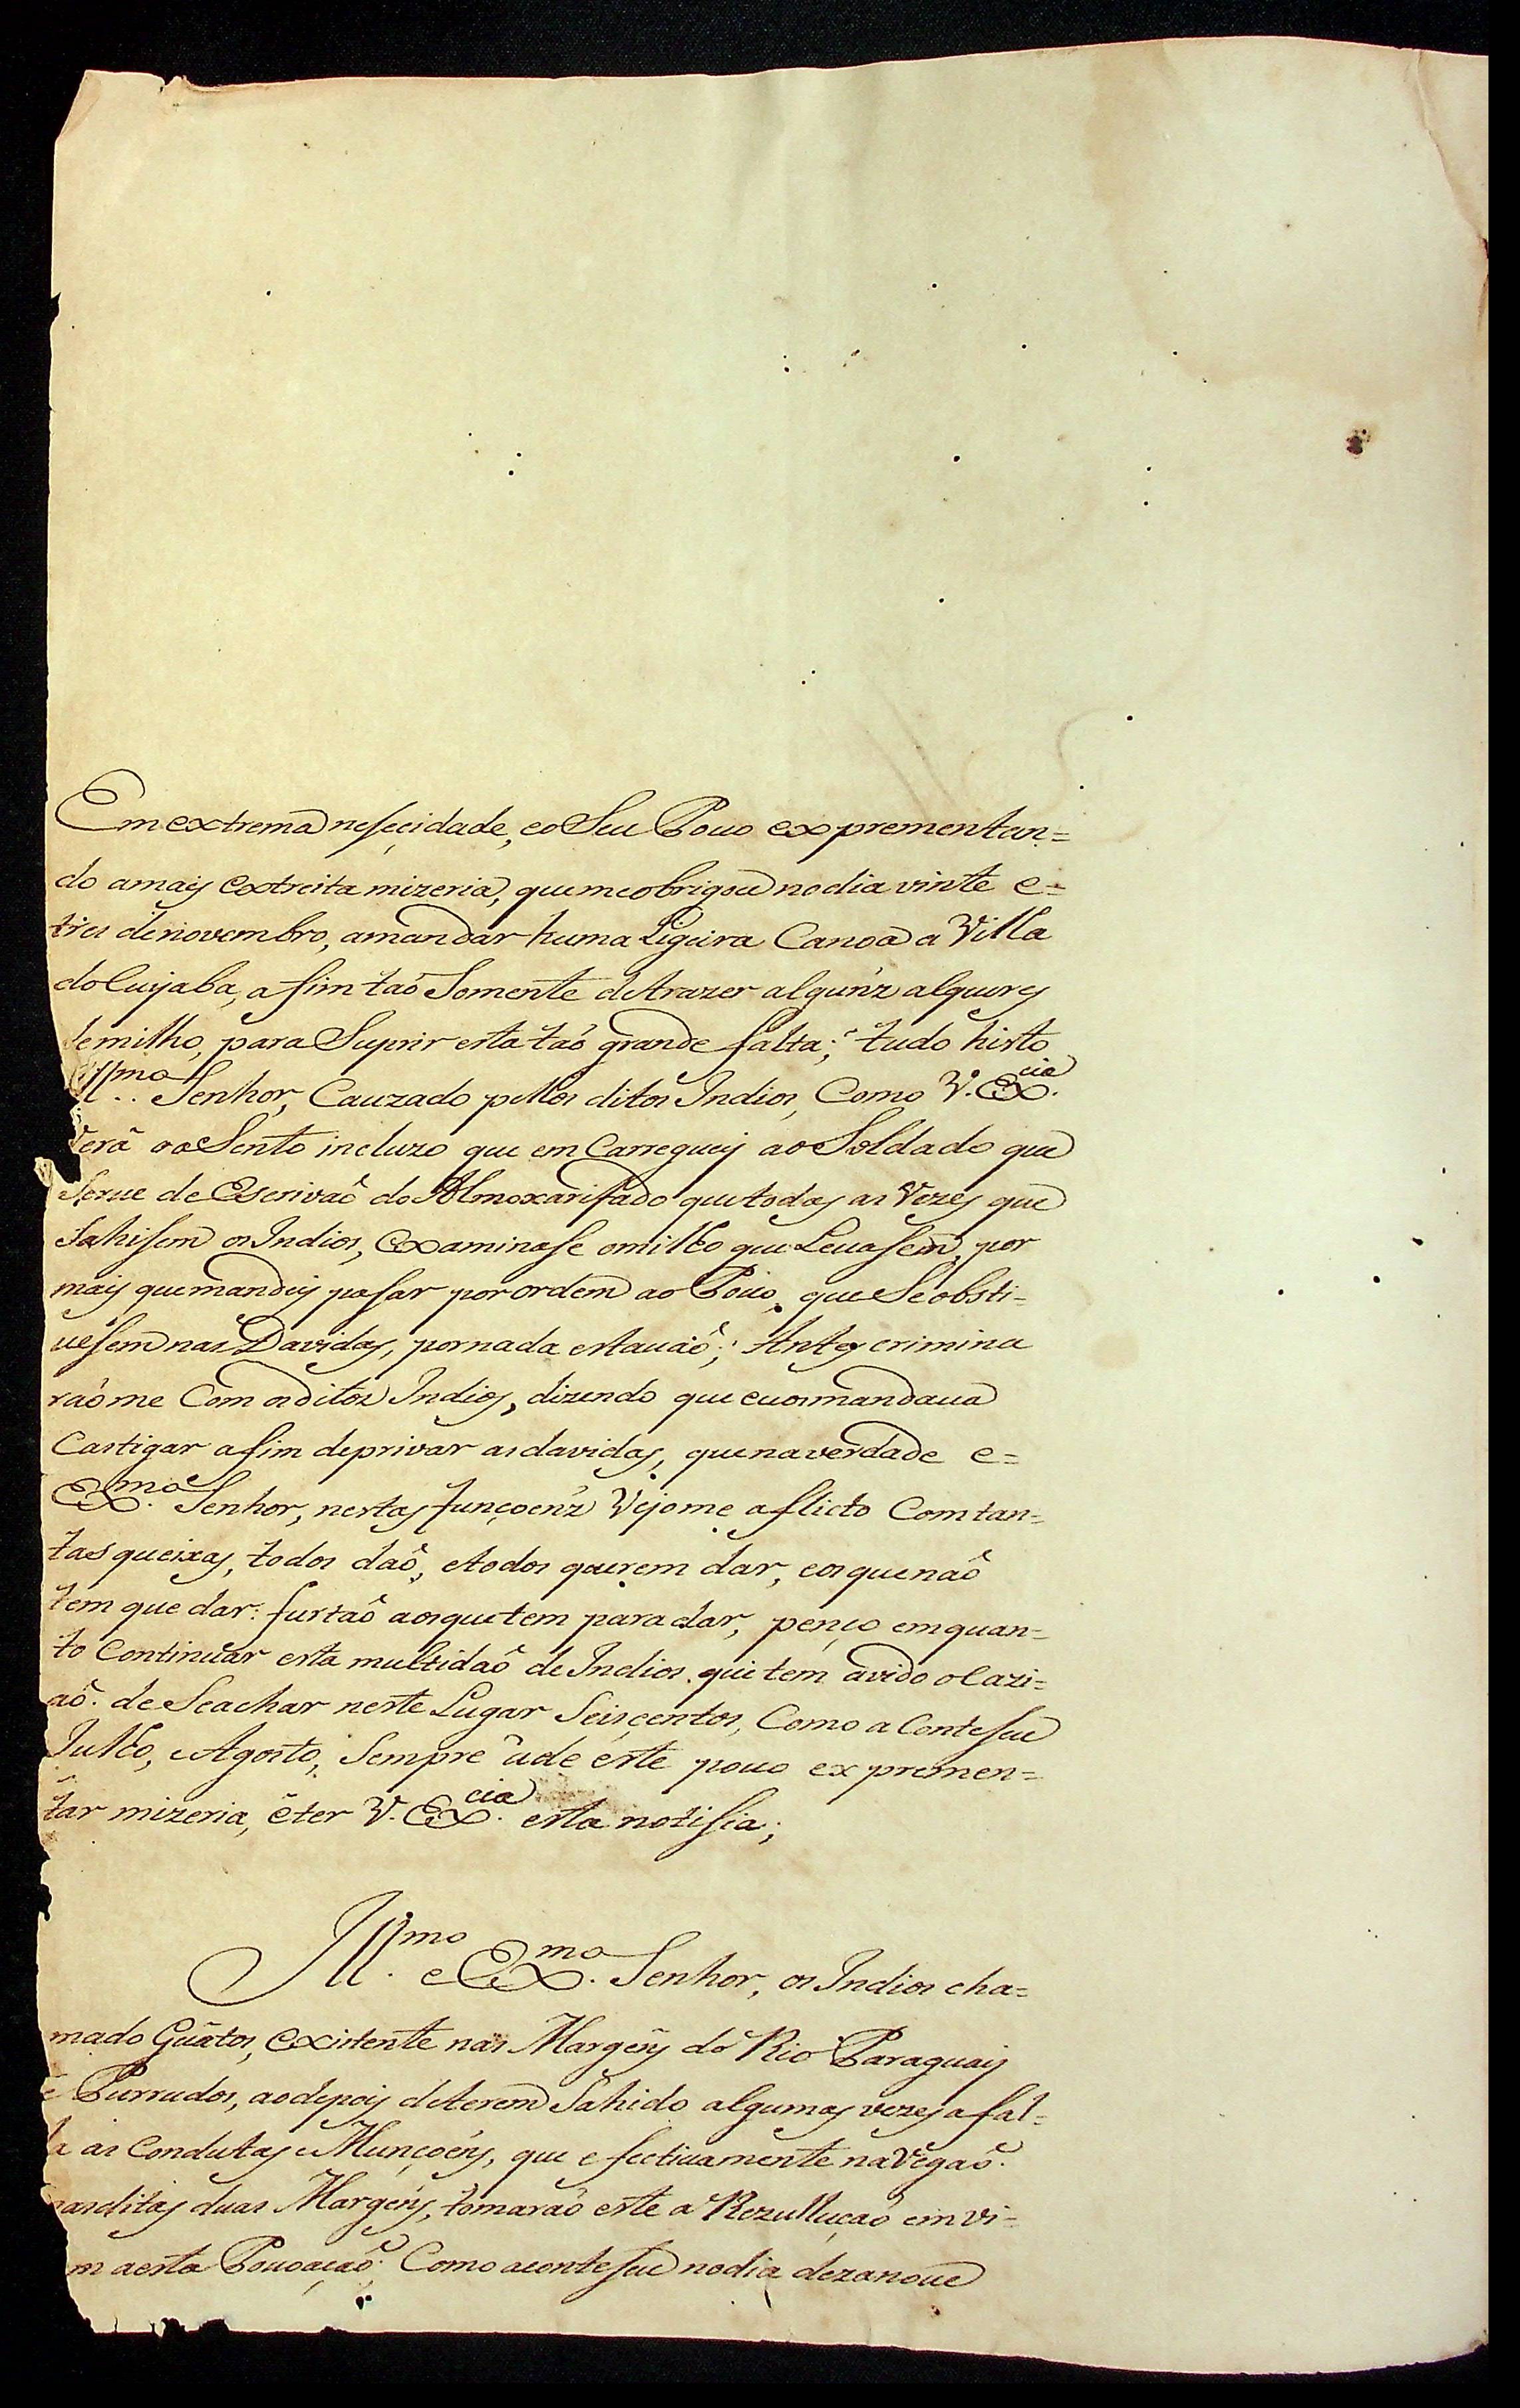 Em extrema nesecidade, eo Seu Pouo exprementan=
do amais extreita mizeria, que me obrigou no dia vinte e=
tres de novembro, amandar huma Ligeira Canoa a Villa
do Cuyaba, afim taõ Somente de trazer algunz alqueires
de milho, para Suprir esta taõ grande falta; tudo histo
Ill.mo Senhor, Cauzado pellos ditos Indios, Como V. Ex.cia
Verâ o aSento incluzo que em Carreguei ao Soldado que
Serue de Escrivaõ do Almoxarifado que todas as Vezes que
Sahisem os Indios, Examinase omilho que Leuasem, por
mais que mandei pasar por ordem ao Pouo, que Se obsti=
uesem nas Davidas, por nada estauaõ; Antes crimina
raõ me Com os ditos Indios, dizendo que eu os mandaua
Castigar afim de privar as davidas, que na verdade e=
Ex.mo Senhor, nestas funçoenz Vejo me aflicto Com tan=
tas queixas, todos daõ, e todos querem dar, e os que naõ
tem que dar: furtaõ aos que tem para dar, penço em quan=
to Continuar esta multidaõ de Indios que tem avido o Cazi=
aõ de Se achar neste Lugar Seiscentos, Como a Conteseu
Julho, e Agosto, Sempre ade este pouo expremen=
tar mizeria, e ter V. Ex.cia esta notisia;
Ill.mo e Ex.mo Senhor, os Indios cha=
mado Guatos, Existente nas Margens do Rio Paraguay
e Purrudos, ao depois de terem Sahido algumas vezes a fal=
la as Condutas e Munçoens, que efectivamente navegaõ
nas ditas duas Margens, tomaraõ este a Rezulluçaõ em vi=
m a esta Pouoaçaõ: Como aconteseu no dia dezanoue